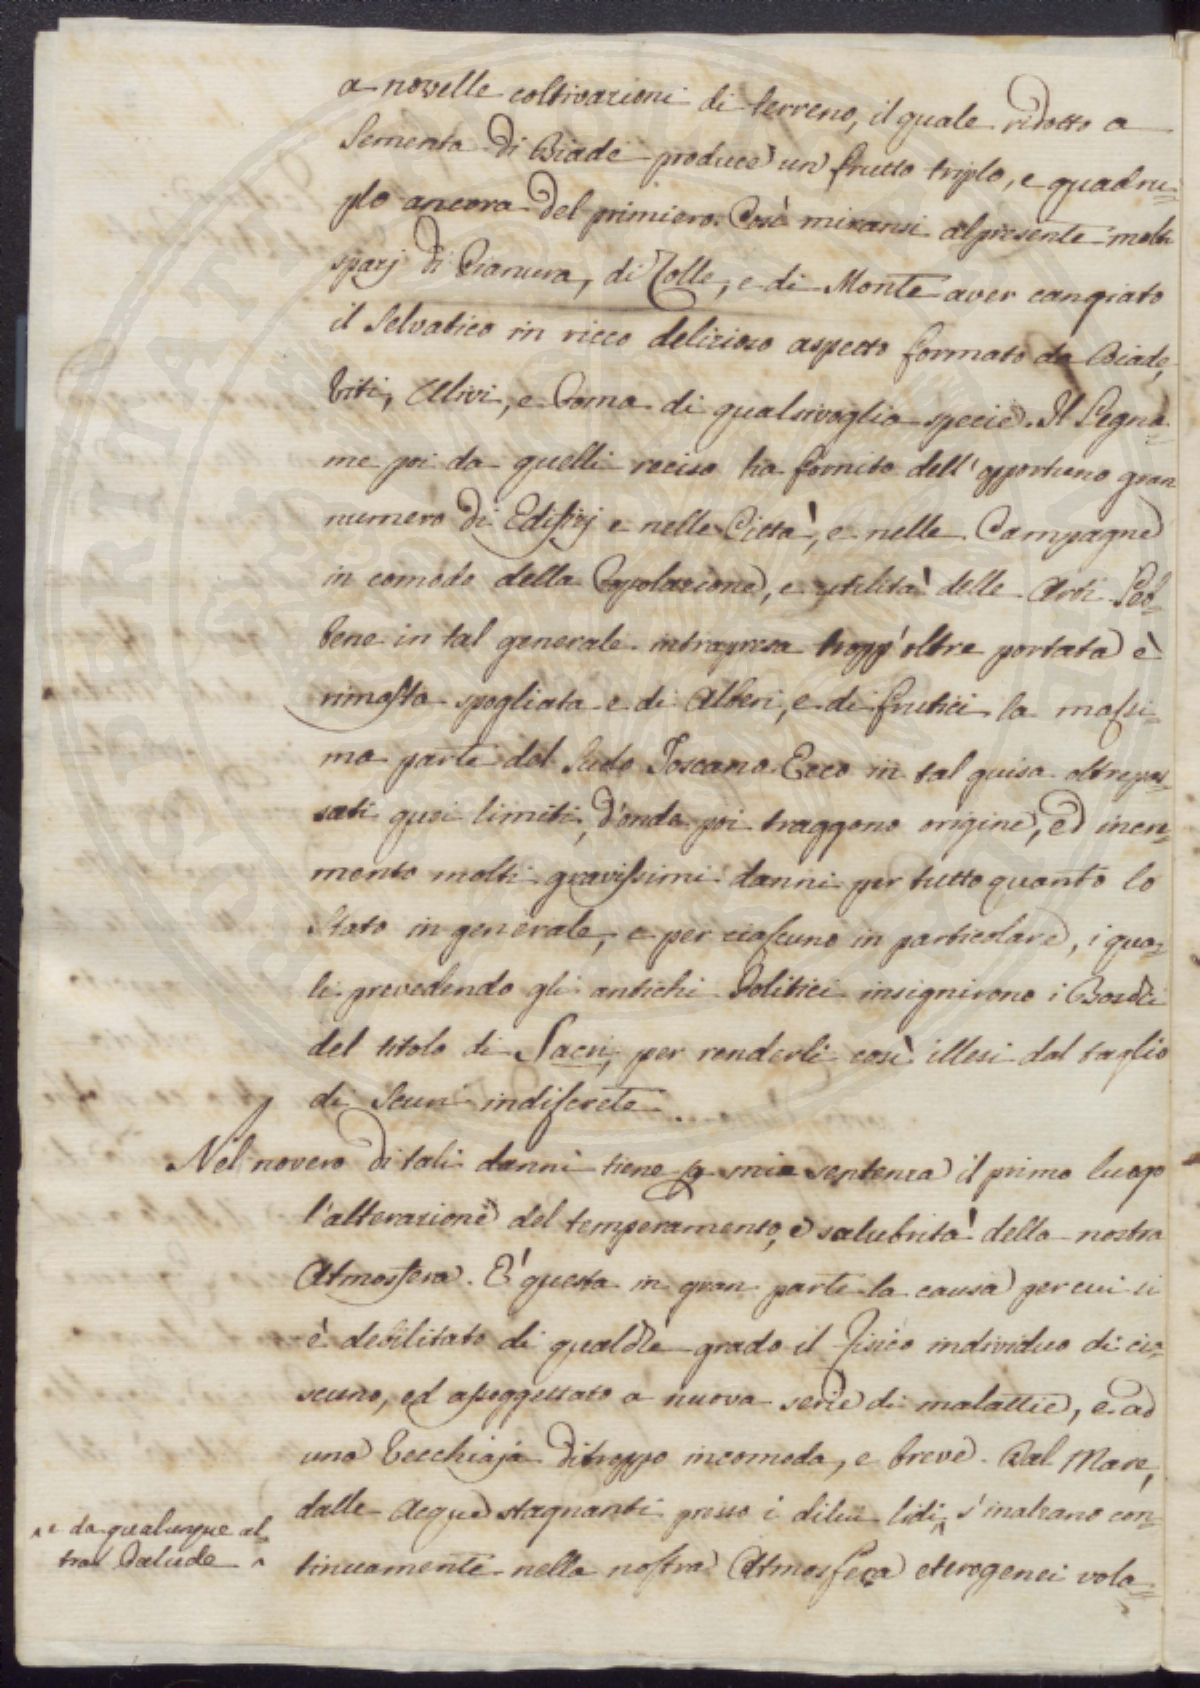 a novelle coltivazioni di terreno, il quale ridotto a
sementa di Biade produce un frutto triplo, e quadru=
plo ancora del primiero. Così miransi al presente molti
spazj di Pianura, di Colle, e di Monte aver cangiato
il selvatico in ricco delizioso aspetto formato da Biade,
Viti, Ulivi, e Poma di qualsivoglia specie. Il Legna=
me poi da quelli reciso ha fornito dell'opportuno gran
numero di Edifizj e nelle Città, e nelle Campagne
in comodo della Popolazione, e utilità delle Arti. Seb=
bene in tal generale intrapresa tropp'oltre portata è
rimasta spogliata e di Alberi, e di frutici la massi=
ma parte del Suolo Toscano. Ecco in tal guisa oltrepas=
sati quei limiti, d'onde poi traggono origine, ed incre=
mento molti gravissimi danni per tutto quanto lo
Stato in generale, e per ciascuno in particolare, i qua=
li prevedendo gli antichi Politici insignirono i Boschi
del titolo di Sacri, per renderli così illesi dal taglio
di Scuri indiscrete.
Nel novero di tali danni tiene p mia sentenza il primo luogo
l'alterazione del temperamento, e salubrità della nostra
Atmosfera. E' questa in gran parte la causa per cui si
è debilitato di qualche grado il fisico individuo di cia=
scuno, ed assoggettato a nuova serie di malattie, e ad
una Vecchiaja di troppo incomoda, e breve. Dal Mare,
dalle Acque stagnanti presso i di lui lidi, ^ s'inalzano con=
tinuamente nella nostra Atmosfera eterogenei vola=
^ e da qualunque al=
tra Palude ^